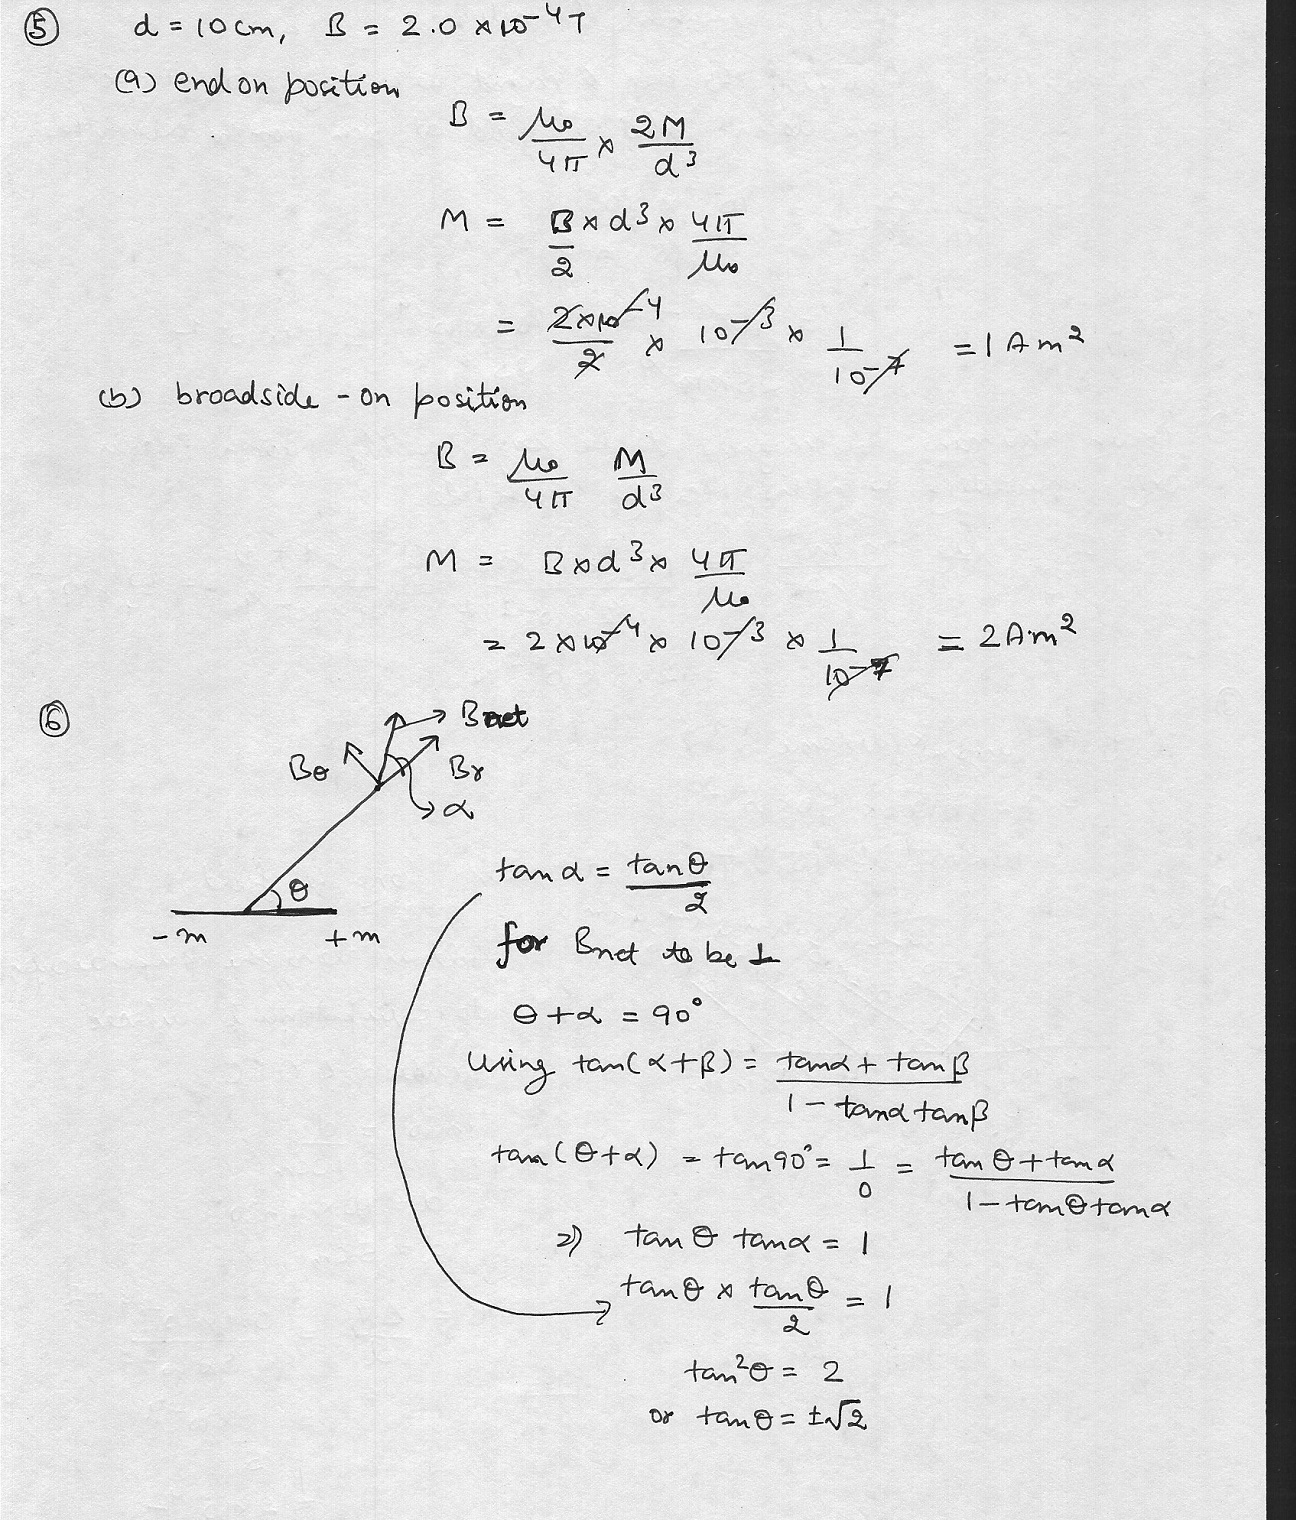 ⑤ d = 10cm, B = 2.0 × 10⁻⁴T
(a) end on position
B = μ₀/4π × 2M/d³
M = B/2 × d³ × 4π/μ₀
= 2×10⁻⁴/2 × 10⁻³ × 1/10⁻⁷ = 1 Am²
(b) broadside - on position
B = μ₀/4π M/d³
M = B×d³× 4π/μ₀
= 2×10⁻⁴ × 10⁻³ × 1/10⁻⁷ = 2A·m²
⑥
Bnet
Bθ Br
α
θ
-m +m
tanα = tanθ/2
for Bnet to be ⊥
θ+α = 90°
Using tan(α+β) = tanα + tanβ / 1 - tanα tanβ
tan(θ+α) = tan90° = 1/0 = tanθ + tanα / 1 - tanθ tanα
⇒ tanθ tanα = 1
tanθ × tanθ/2 = 1
tan²θ = 2
or tanθ = ±√2